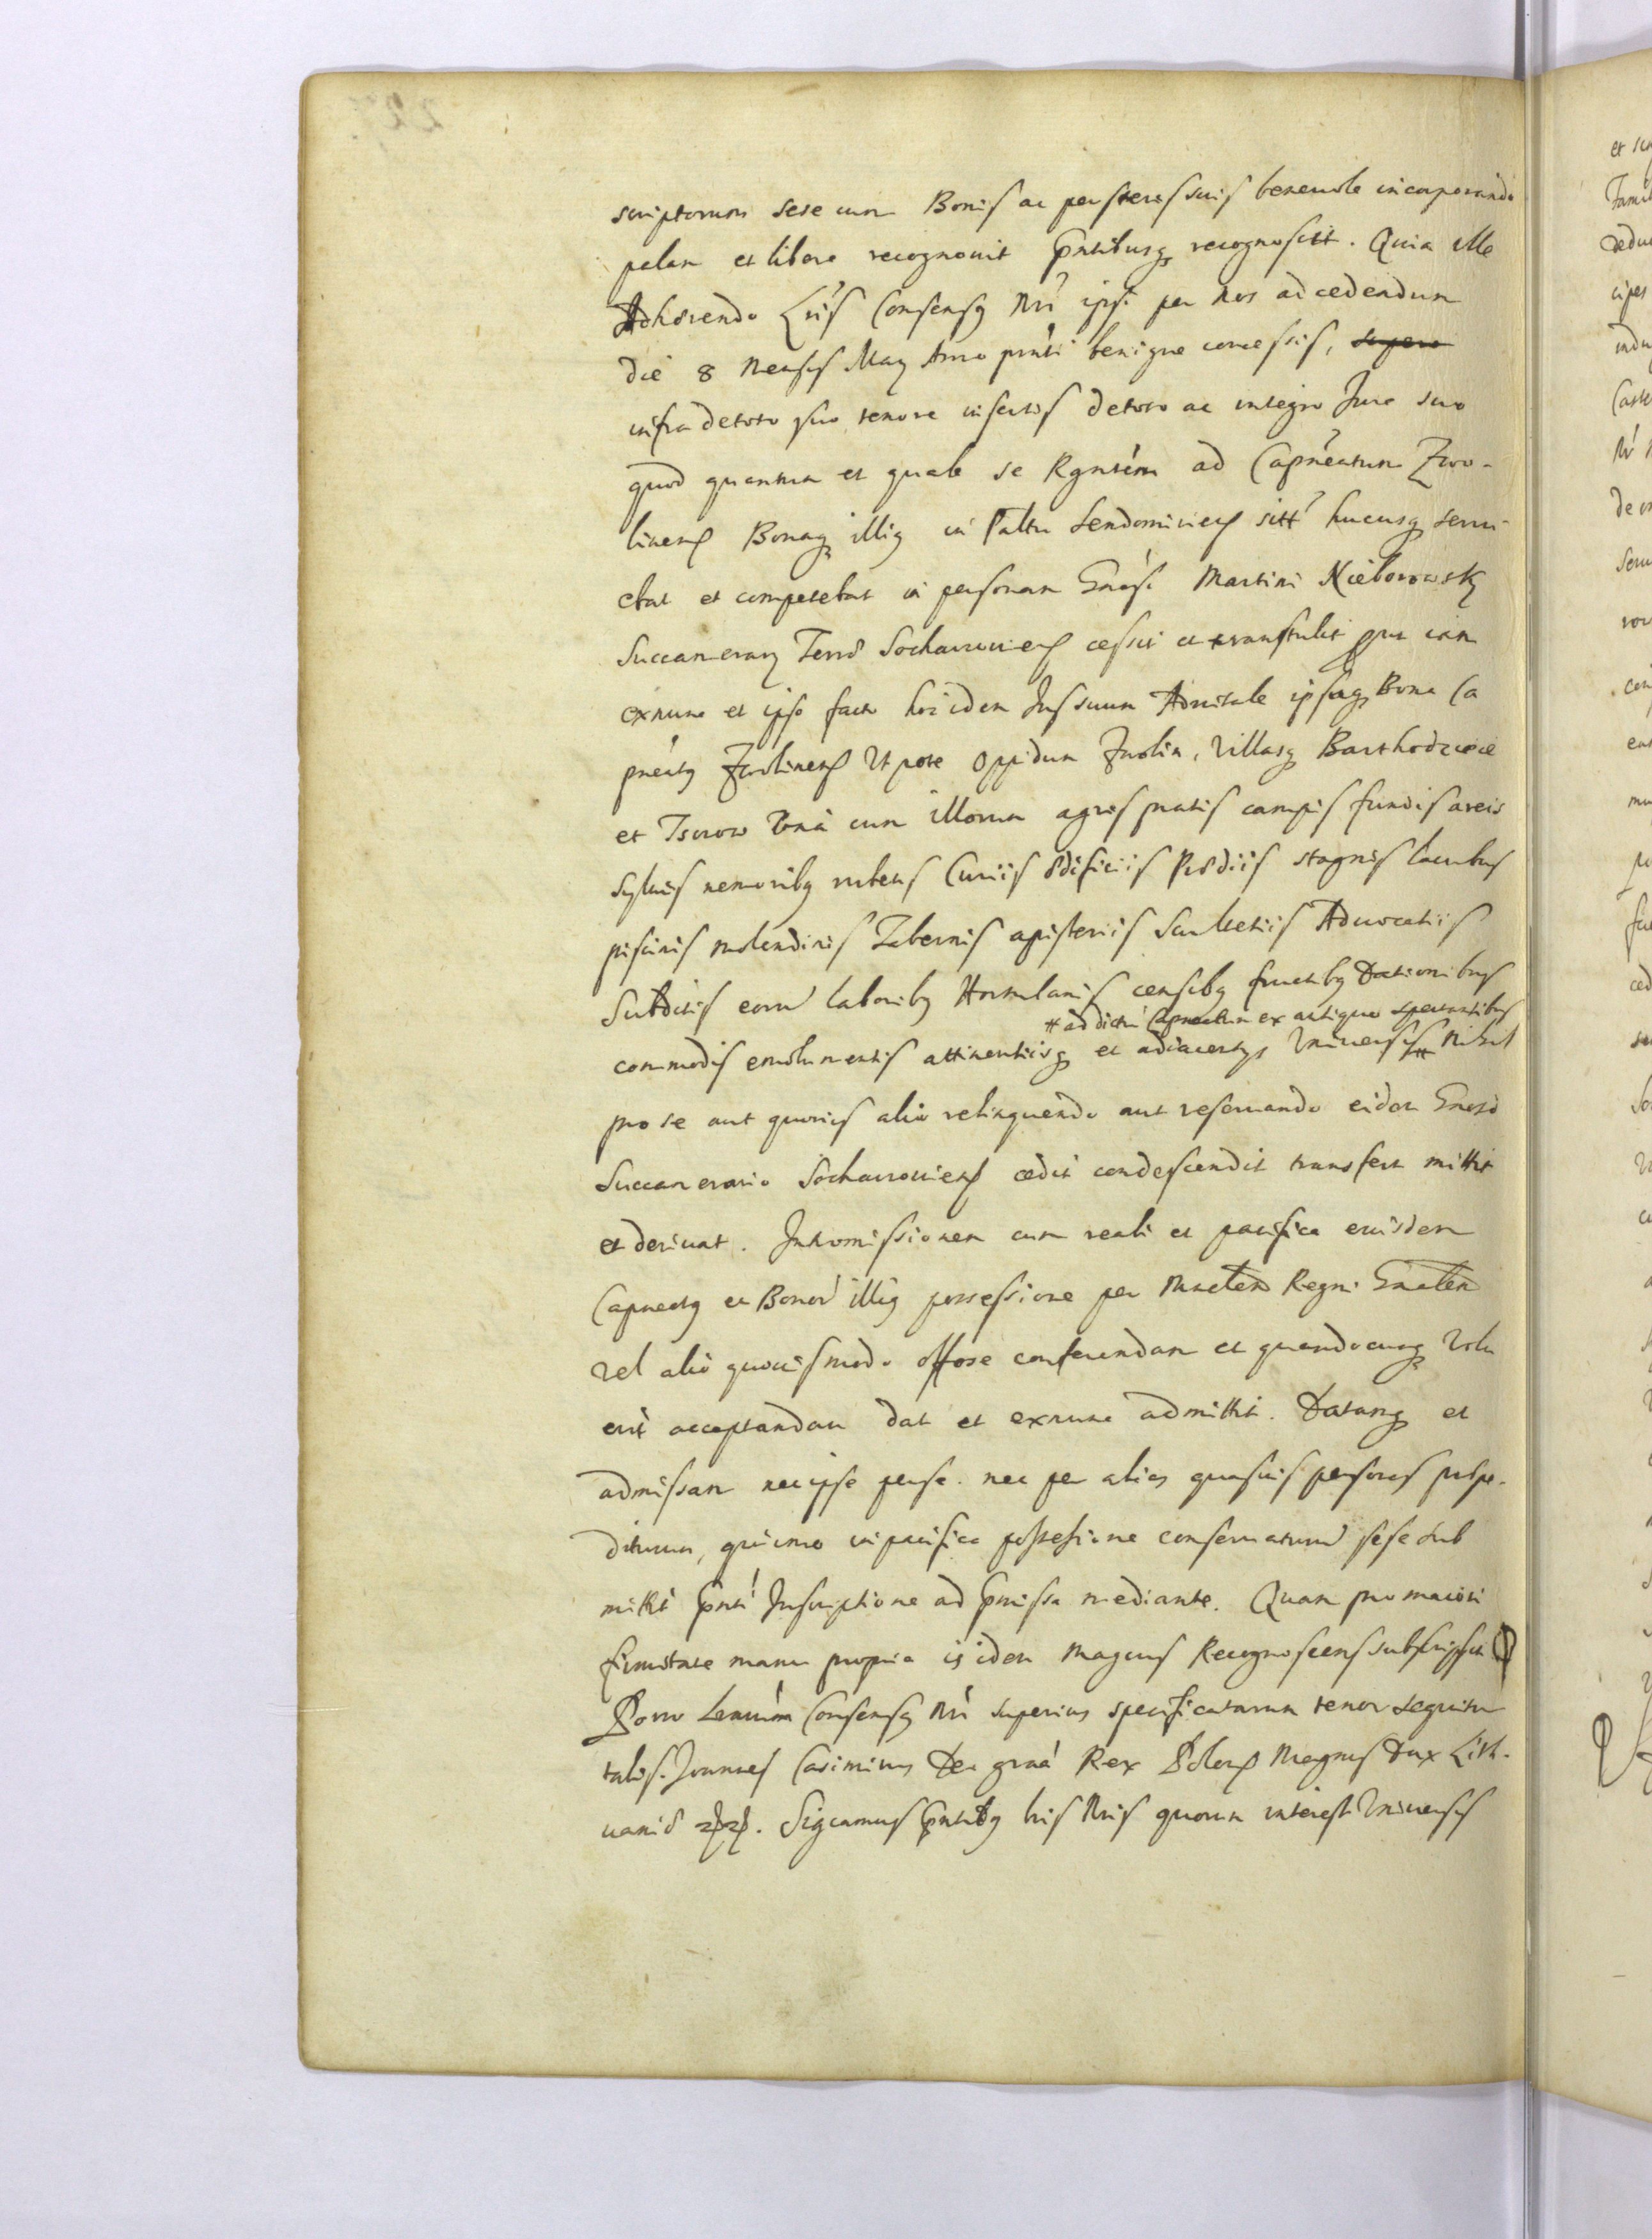 scriptorum sese cum Bonis ac posteris suis beneuole incorporando
palam et libere recognouit Pntibusq recognoscit. Quia ille
Adhærendo Lris Consensq Nri ipsi per Nos ad cedendum
die 8 Mensis May Anno pnti benigne concessis, supero
infra de toto suo tenore insertis de toto ac integro Jure suo
quod quantum et quale se Rgntem ad Capneatum Zwo-
linens Bonaq illiq in Paltu Sendomiriens sitt hucusq serui-
ebat et competebat in personam Gnosi Martini Nieborowsky
Succamerarij Terræ Sochaczouiens cessit et transtulit put iam
exnunc et ipso facto hoc idem Jus suum Aduitale ipsaq Bona Ca
pneatq Zwolinens Vtpote Oppidum Zwolin, Villasq Barthodzieie
et Tsurow Vna cum illorum agris pratis campis fundis areis
syluis nemoribq rubetis Curiis ædificiis Prædiis stagnis lacubus
piscinis molendinis Tabernis apisteriis Scultetiis Aduocatiis
Subditis eorum laboribq Hortulanis censibq fructibq Dationibus
# ad dictum Capneatum ex antiquo spectantibus
commodis emolumentis attinentiisq et adiacentijs Vniuersis # Nihil
pro se aut quouis alio relinquendo aut reseruando eidem Gnoso
Succamerario Sochaczouiens cedit condescendit transfert mittit
et deriuat. Intromissionem cum reali et pacifica eiusdem
Capneatq et Bonor illiq possessione per Mnrlem Regni Gnalem
vel alio quouismodo offose conferendam et quandocunq Volu
erit acceptandam dat et exnunc admittit. Datamq et
admissam nec ipse per se. nec per alias quasuis personas præpe-
diturum, quinimo in pacifica possessione conseruaturum sese sub
mittit Pnti Inscriptione ad Pmissa mediante. Quam pro maiori
firmitate manu propria is idem Magcus Recognoscens subscripsit
Porro Lrarum Consensq Nri superius specificatarum tenor sequitur
talis. Joannes Casimirus Dei graa Rex Poloniæ Magnus Dux Lith-
uaniæ etc. Significamus Pntibq his Nris quorum interest Vniuersis